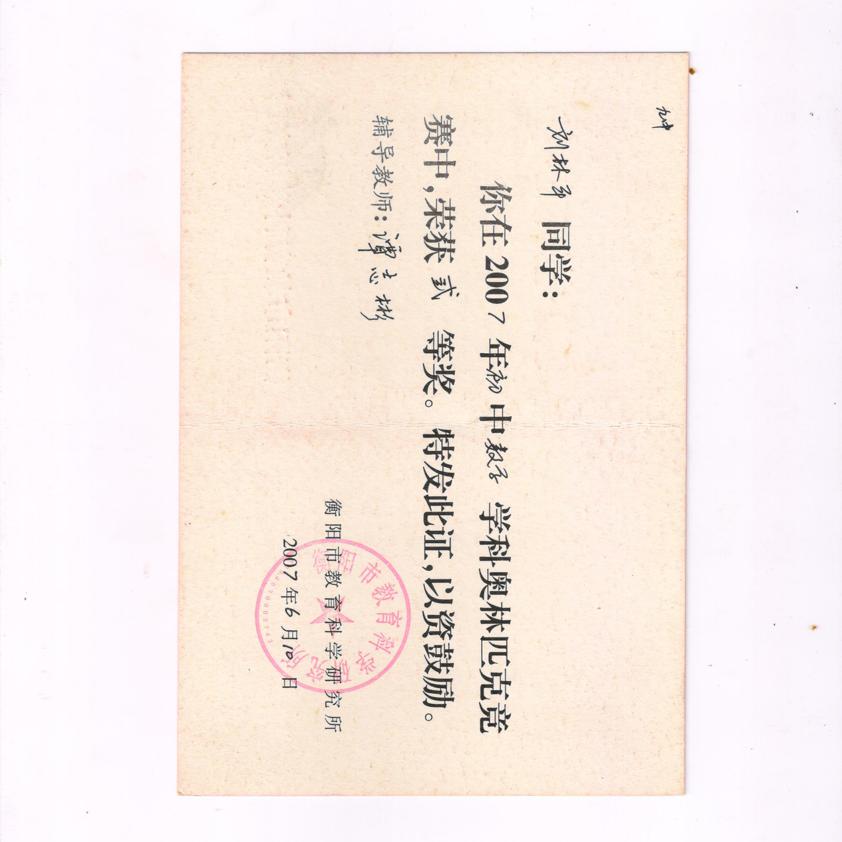 九中
刘林平 同学:
你在 2007 年初中数学 学科奥林匹克竞
赛中,荣获 弍 等奖。特发此证,以资鼓励。
辅导教师:谭志彬
衡阳市教育科学研究所
2007年6月10日
衡阳市教育科学研究所